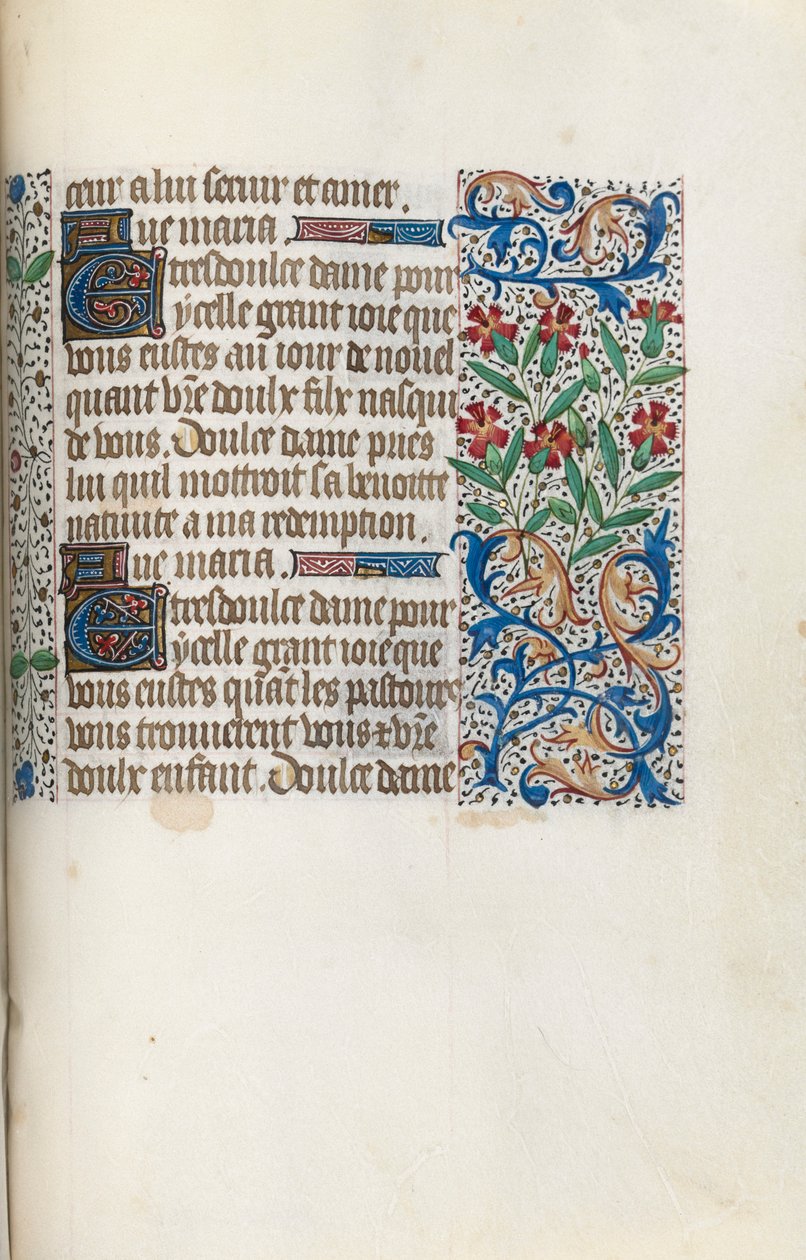 cueur a lui seruir et amer.
Aue maria.
E tresdoulce dame pour
ycelle grant ioie que
vous eustes au iour de nouel
quant vr̄e doulx filx nasqui
de vous. Doulce dame pries
lui quil mottroit sa benoitte
natiuite a ma redemption.
Aue maria.
E tresdoulce dame pour
ycelle grant ioie que
vous eustes quāt les pastoure
vous trouuerent vous & vr̄e
doulx enfant. Doulce dame